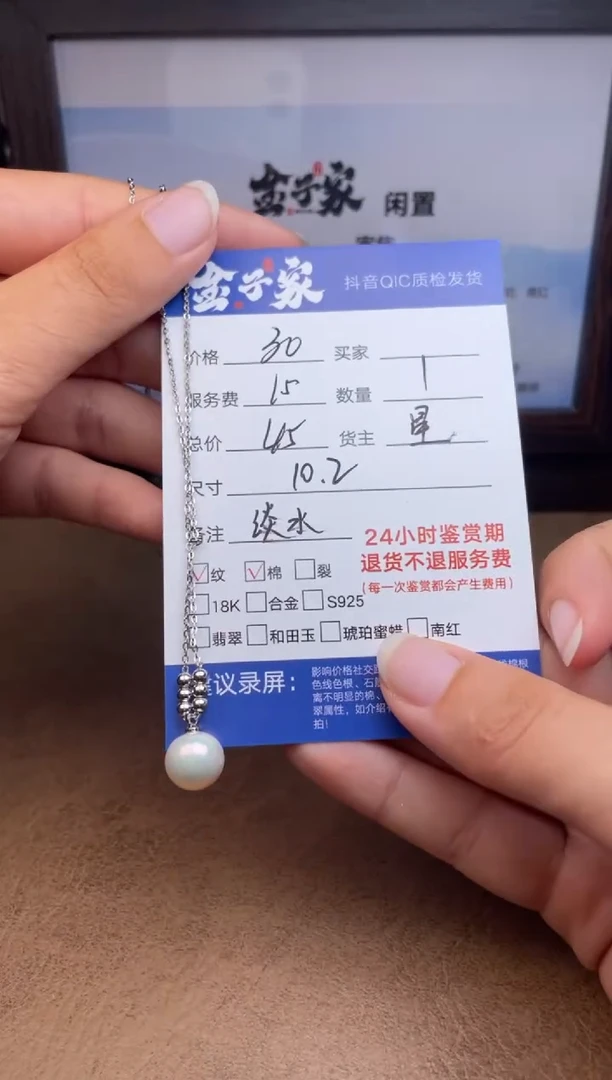 盒子家 闲置
盒子家 抖音QIC质检发货
价格 30 买家
服务费 15 数量 1
总价 45 货主 星
尺寸 10.2
备注 淡水
24小时鉴赏期
退货不退服务费
(每一次鉴赏都会产生费用)
纹 棉 裂
18K 合金 S925
翡翠 和田玉 琥珀蜜蜡 南红
建议录屏:
影响价格社交
色线色根、石
离不明显的棉、
翠属性，如介绍
拍!